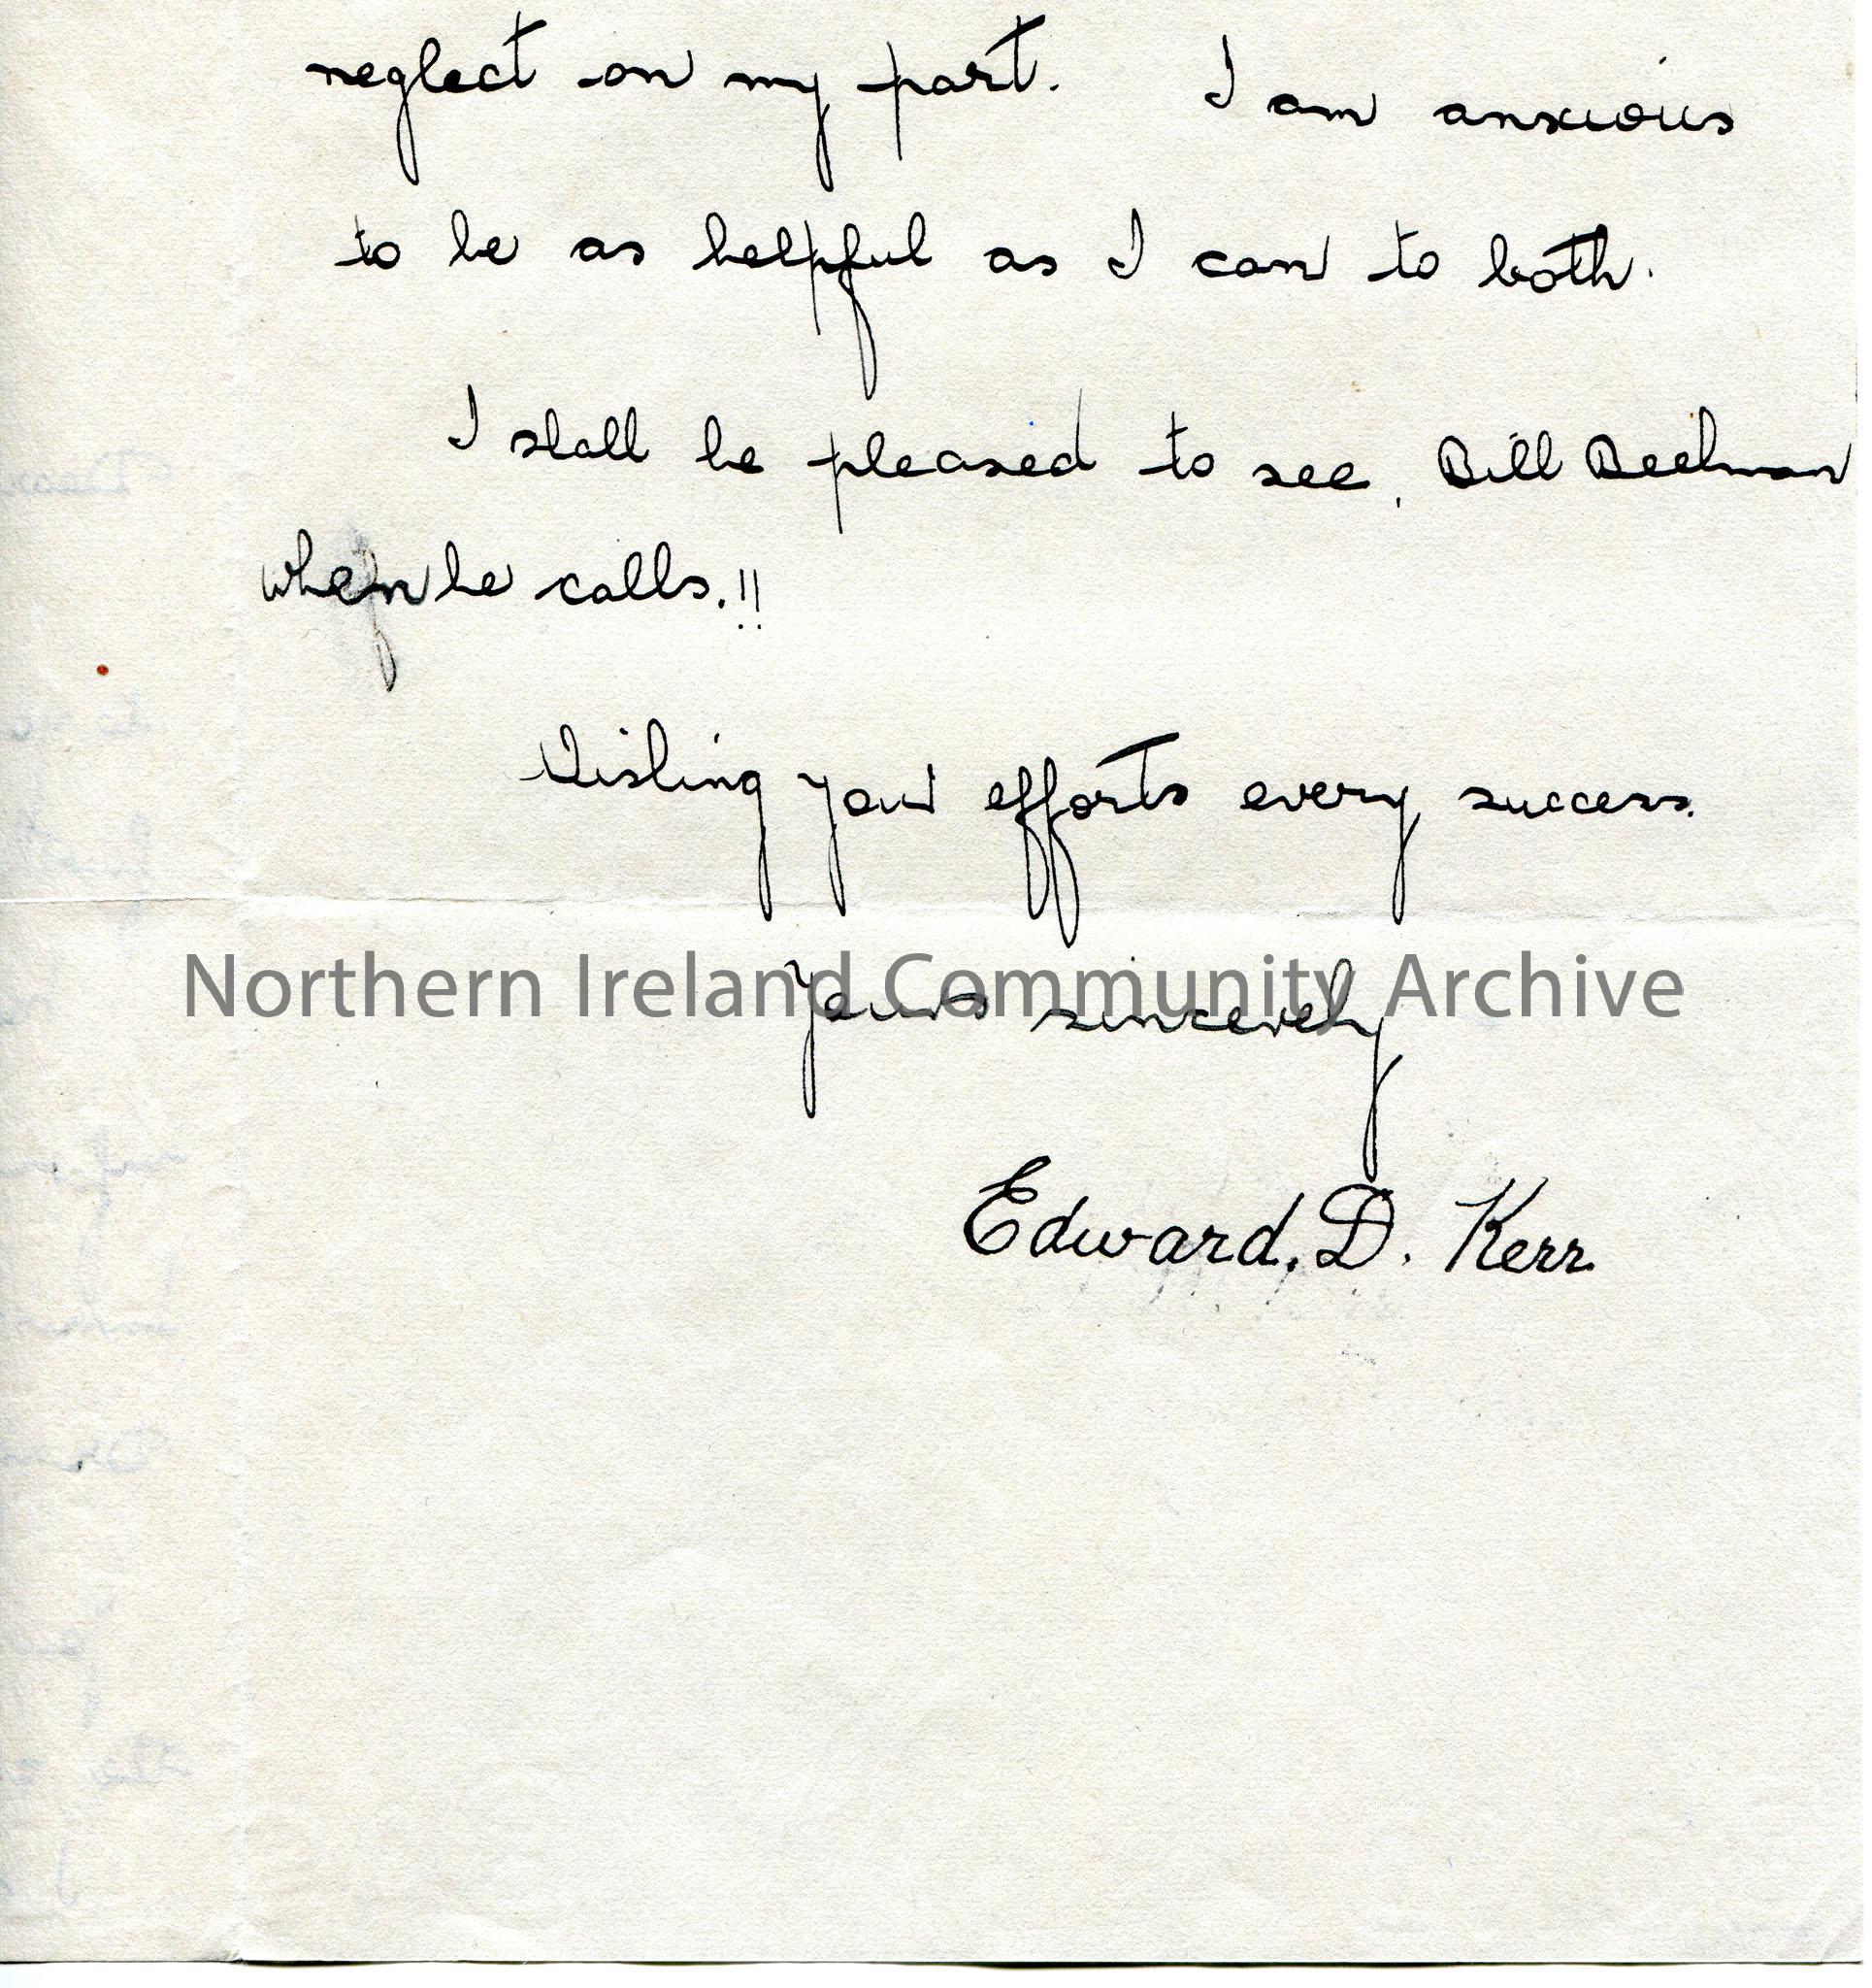 neglect on my part. I am anxious
to be as helpful as I can to both.
I shall be pleased to see, Bill Beelman
when he calls.!!
Wishing your efforts every success.
Yours sincerely
Northern Ireland Community Archive
Edward. D. Kerr